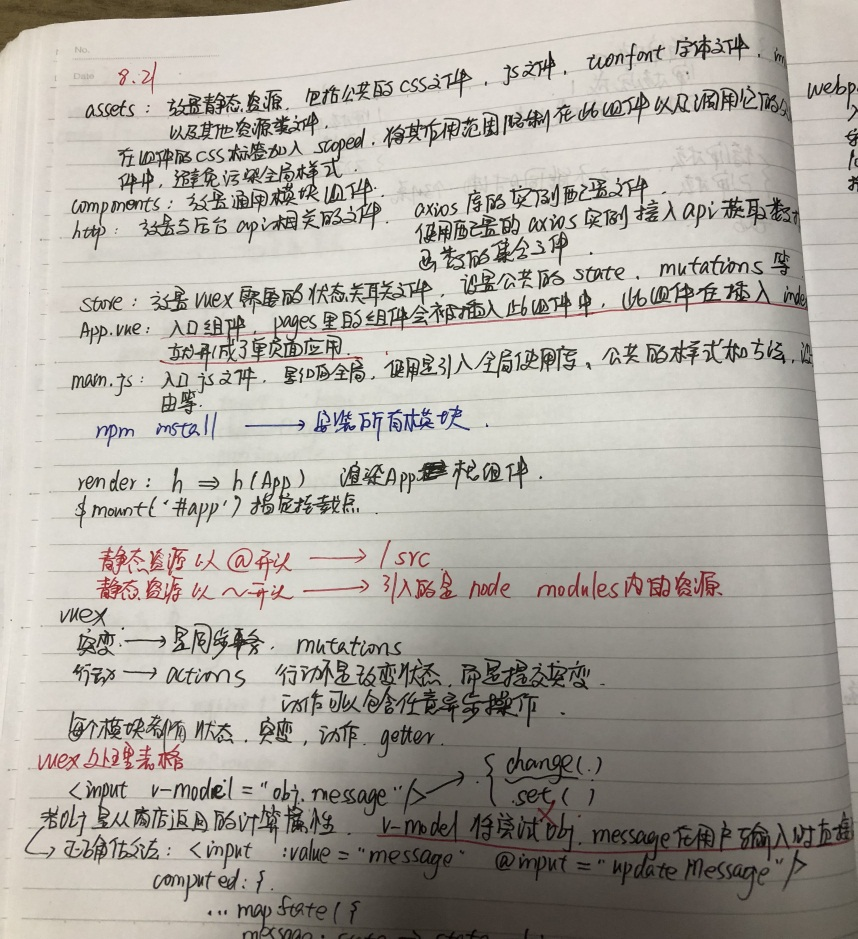 No.
Date 8.21
assets: 放置静态资源, 包括公共的css文件, js文件, iconfont 字体文件, im
以及其他资源类文件.
在组件的css标签加入 scoped, 将其作用范围限制在此组件以及调用它的
件中, 避免污染全局样式.
components: 放置通用模块组件.
http: 放置与后台api相关的文件. axios 库的实例配置文件.
使用配置的axios实例接入api获取数据
函数的集合文件.
store: 放置vuex需要的状态关联文件, 设置公共的state, mutations等
App.vue: 入口组件, pages里的组件会被插入此组件中, 此组件在插入 inde
就形成了单页面应用.
main.js: 入口js文件, 影响全局, 使用是引入全局使用库、公共的样式和方法,
由等.
npm install ⟶ 安装所有模块.
render: h ⇒ h(App) 渲染App 根组件.
$mount('#app') 指定挂载点.
静态资源以@开头 ⟶ /src
静态资源以~开头 ⟶ 引入的是 node modules内的资源
vuex
突变: ⟶ 是同步事务. mutations
行动 ⟶ actions 行动不是改变状态, 而是提交突变.
动作可以包含任意异步操作.
每个模块都有状态, 突变, 动作, getter.
vuex处理表格
<input v-model = "obj. message"/> → { change(.)
set( )
若obj是从商店返回的计算属性. v-model 将尝试obj. message在用户输入时直接
→ 正确做法: <input :value = "message" @input = "update Message"/>
computed: {.
... mapState ({
message: state → state.
webp